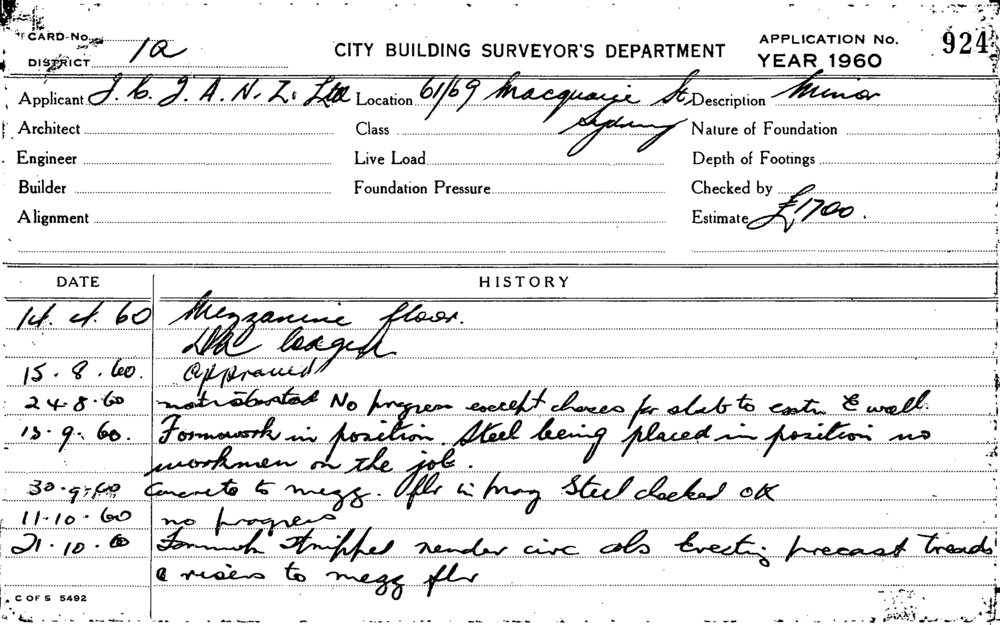 CARD No.
DISTRICT 1a
CITY BUILDING SURVEYOR'S DEPARTMENT
APPLICATION No. 924
YEAR 1960
Applicant I. C. I. A. N. Z. Ltd Location 61/69 Macquarie St, Sydney Description Minor
Architect Class Nature of Foundation
Engineer Live Load Depth of Footings
Builder Foundation Pressure Checked by
Alignment Estimate £1700.
DATE HISTORY
14. 4. 60 Mezzanine floor.
DA lodged
15. 8. 60. approved
24-8-60 not started No progress except chases for slab to extn E wall.
13-9-60. Formwork in position. Steel being placed in position no
workmen on the job.
30-9-60 Concrete to mezz. flr in prog Steel checked OK
11-10-60 no progress
21.10.60 Formwk stripped render circ cols Erecting precast treads
& risers to mezz flr
C OF S 5492